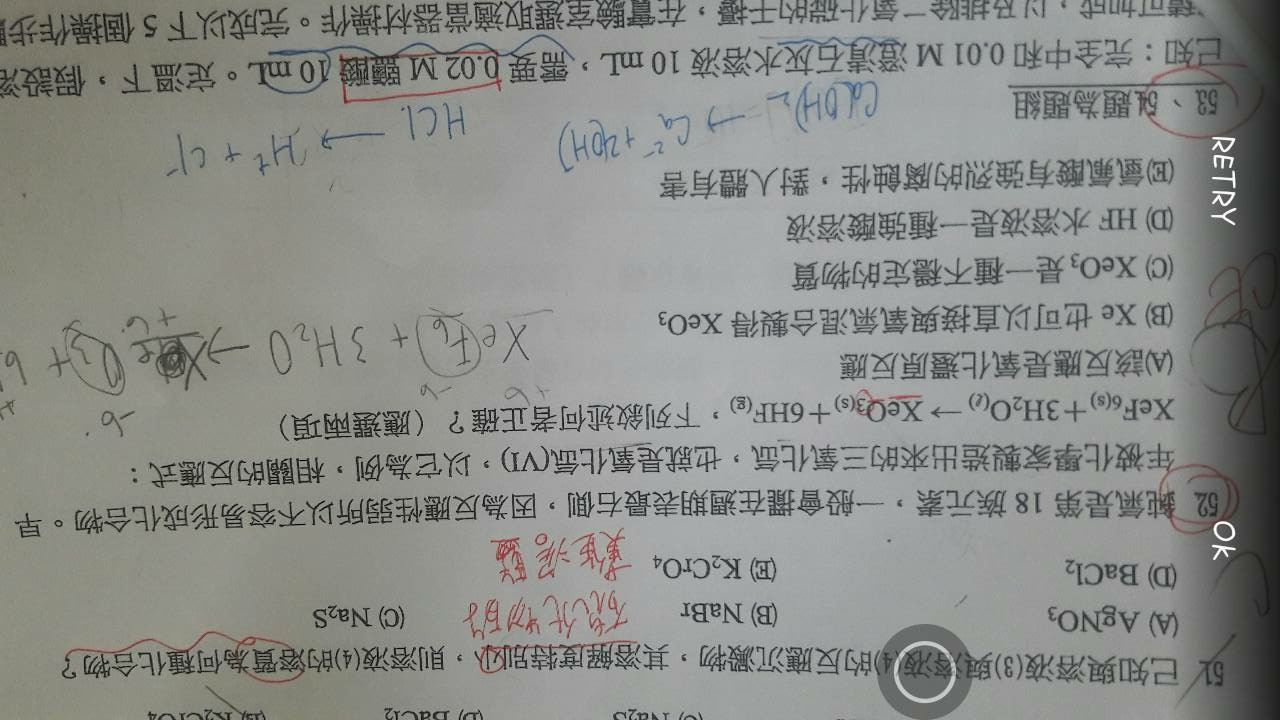 (A) AgNO₃ (B) NaBr (C) Na₂S
(D) BaCl₂ (E) K₂CrO₄
51 已知與溶液(3)與溶液(4)的反應沉澱物，其溶解度特別小，則溶液(4)的溶質為何種化合物？
52 鈍氣是第 18 族元素，一般會擺在週期表最右側，因為反應性弱所以不容易形成化合物。早
年被化學家製造出來的三氧化氙，也就是氧化氙(VI)，以它為例，相關的反應式：
XeF₆(s)＋3H₂O(ℓ) → XeO₃(s)＋6HF(g)，下列敘述何者正確？（應選兩項）
+6 -6 -6
XeF₆ + 3H₂O → XeO₃ +
+6
(A)該反應是氧化還原反應
(B) Xe 也可以直接與氧氣混合製得 XeO₃
(C) XeO₃ 是一種不穩定的物質
(D) HF 水溶液是一種強酸溶液
(E)氫氟酸有強烈的腐蝕性，對人體有害
Ca(OH)₂ → Ca²⁻ + 2(OH)
HCl → H⁺ + Cl⁻
53、54 題為題組
已知：完全中和 0.01 M 澄清石灰水溶液 10 mL，需要 0.02 M 鹽酸 10 mL。定溫下，假設溶
積可加成，以及排除二氧化碳的干擾，在實驗室選取適當器材操作。完成以下 5 個操作步
RETRY
Ok